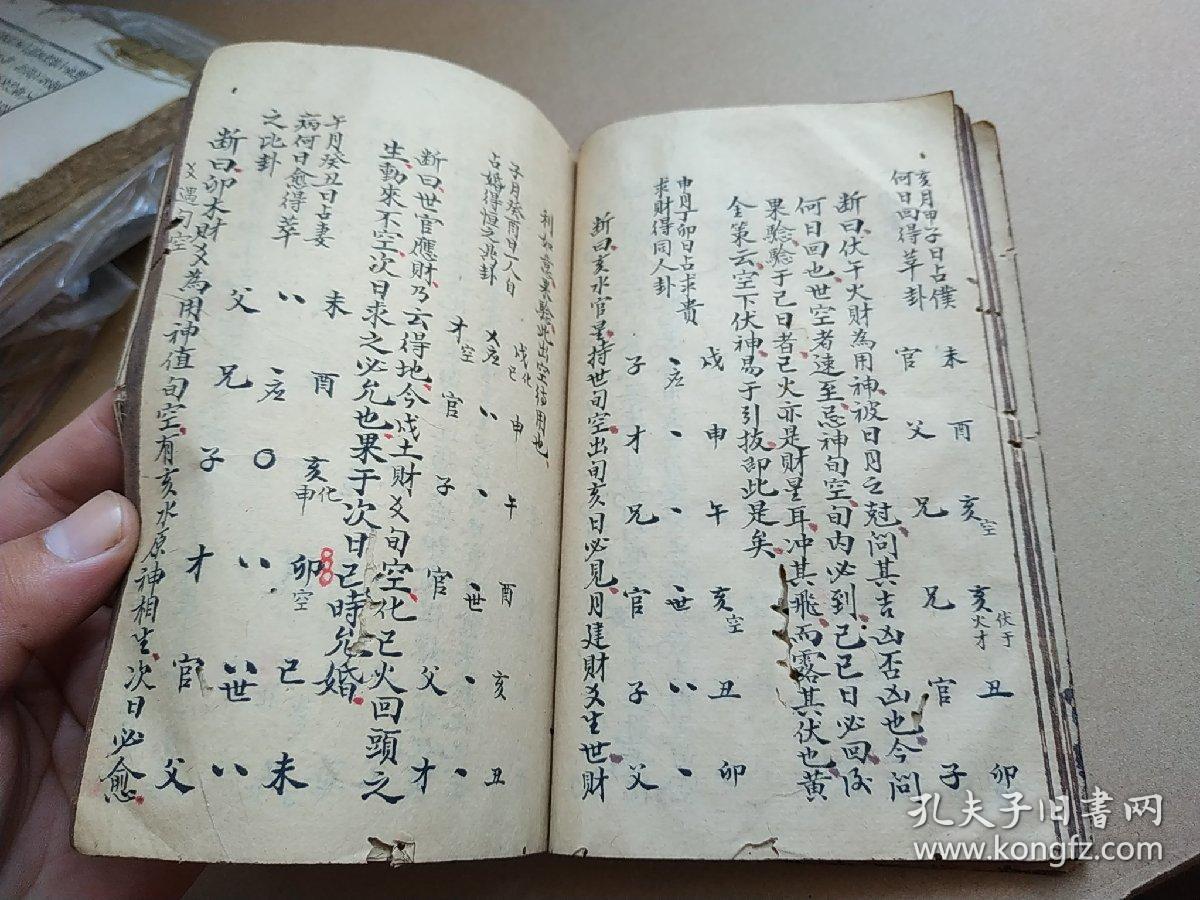 亥月甲子日占僕
何日回得革卦
未 酉 亥空 亥伏于火才 丑 卯
官 父 兄 兄 官 子
断曰伏于火財為用神被日月之尅問其吉凶否凶也今問
何日回也世空者速至忌神旬空旬内必到己巳日必回後
果騐騐于己日者己火亦是財星耳冲其飛而露其伏也黄
金策云空下伏神易于引拔即此是矣
申月丁卯日占求貴
求財得同人卦
戌 申 午 亥空 丑 卯
、应 、 、 、世 〃 、
子 才 兄 官 子 父
断曰亥水官星持世旬空出旬亥日必見月建財爻生世財
利如意果騐此出空值用也
子月癸酉日一人自
占婚得恒之兆卦
戌化巳 申 午 酉 亥 丑
乂应 〃 、 、世 、 、
才空 官 子 官 父 才
断曰世官應財乃云得地今戊土財爻旬空化巳火回頭之
生動來不空次日求之必允也果于次日己時允婚
午月癸丑日占妻
病何日愈得萃
之比卦
未 酉 亥化申 卯空 巳 未
〃 、应 〇 〃 〃世 〃
父 兄 子 才 官 父
断曰卯木財爻為用神值旬空有亥水原神相生次日必愈
爻遇旬空
孔夫子旧書网
www.kongfz.com